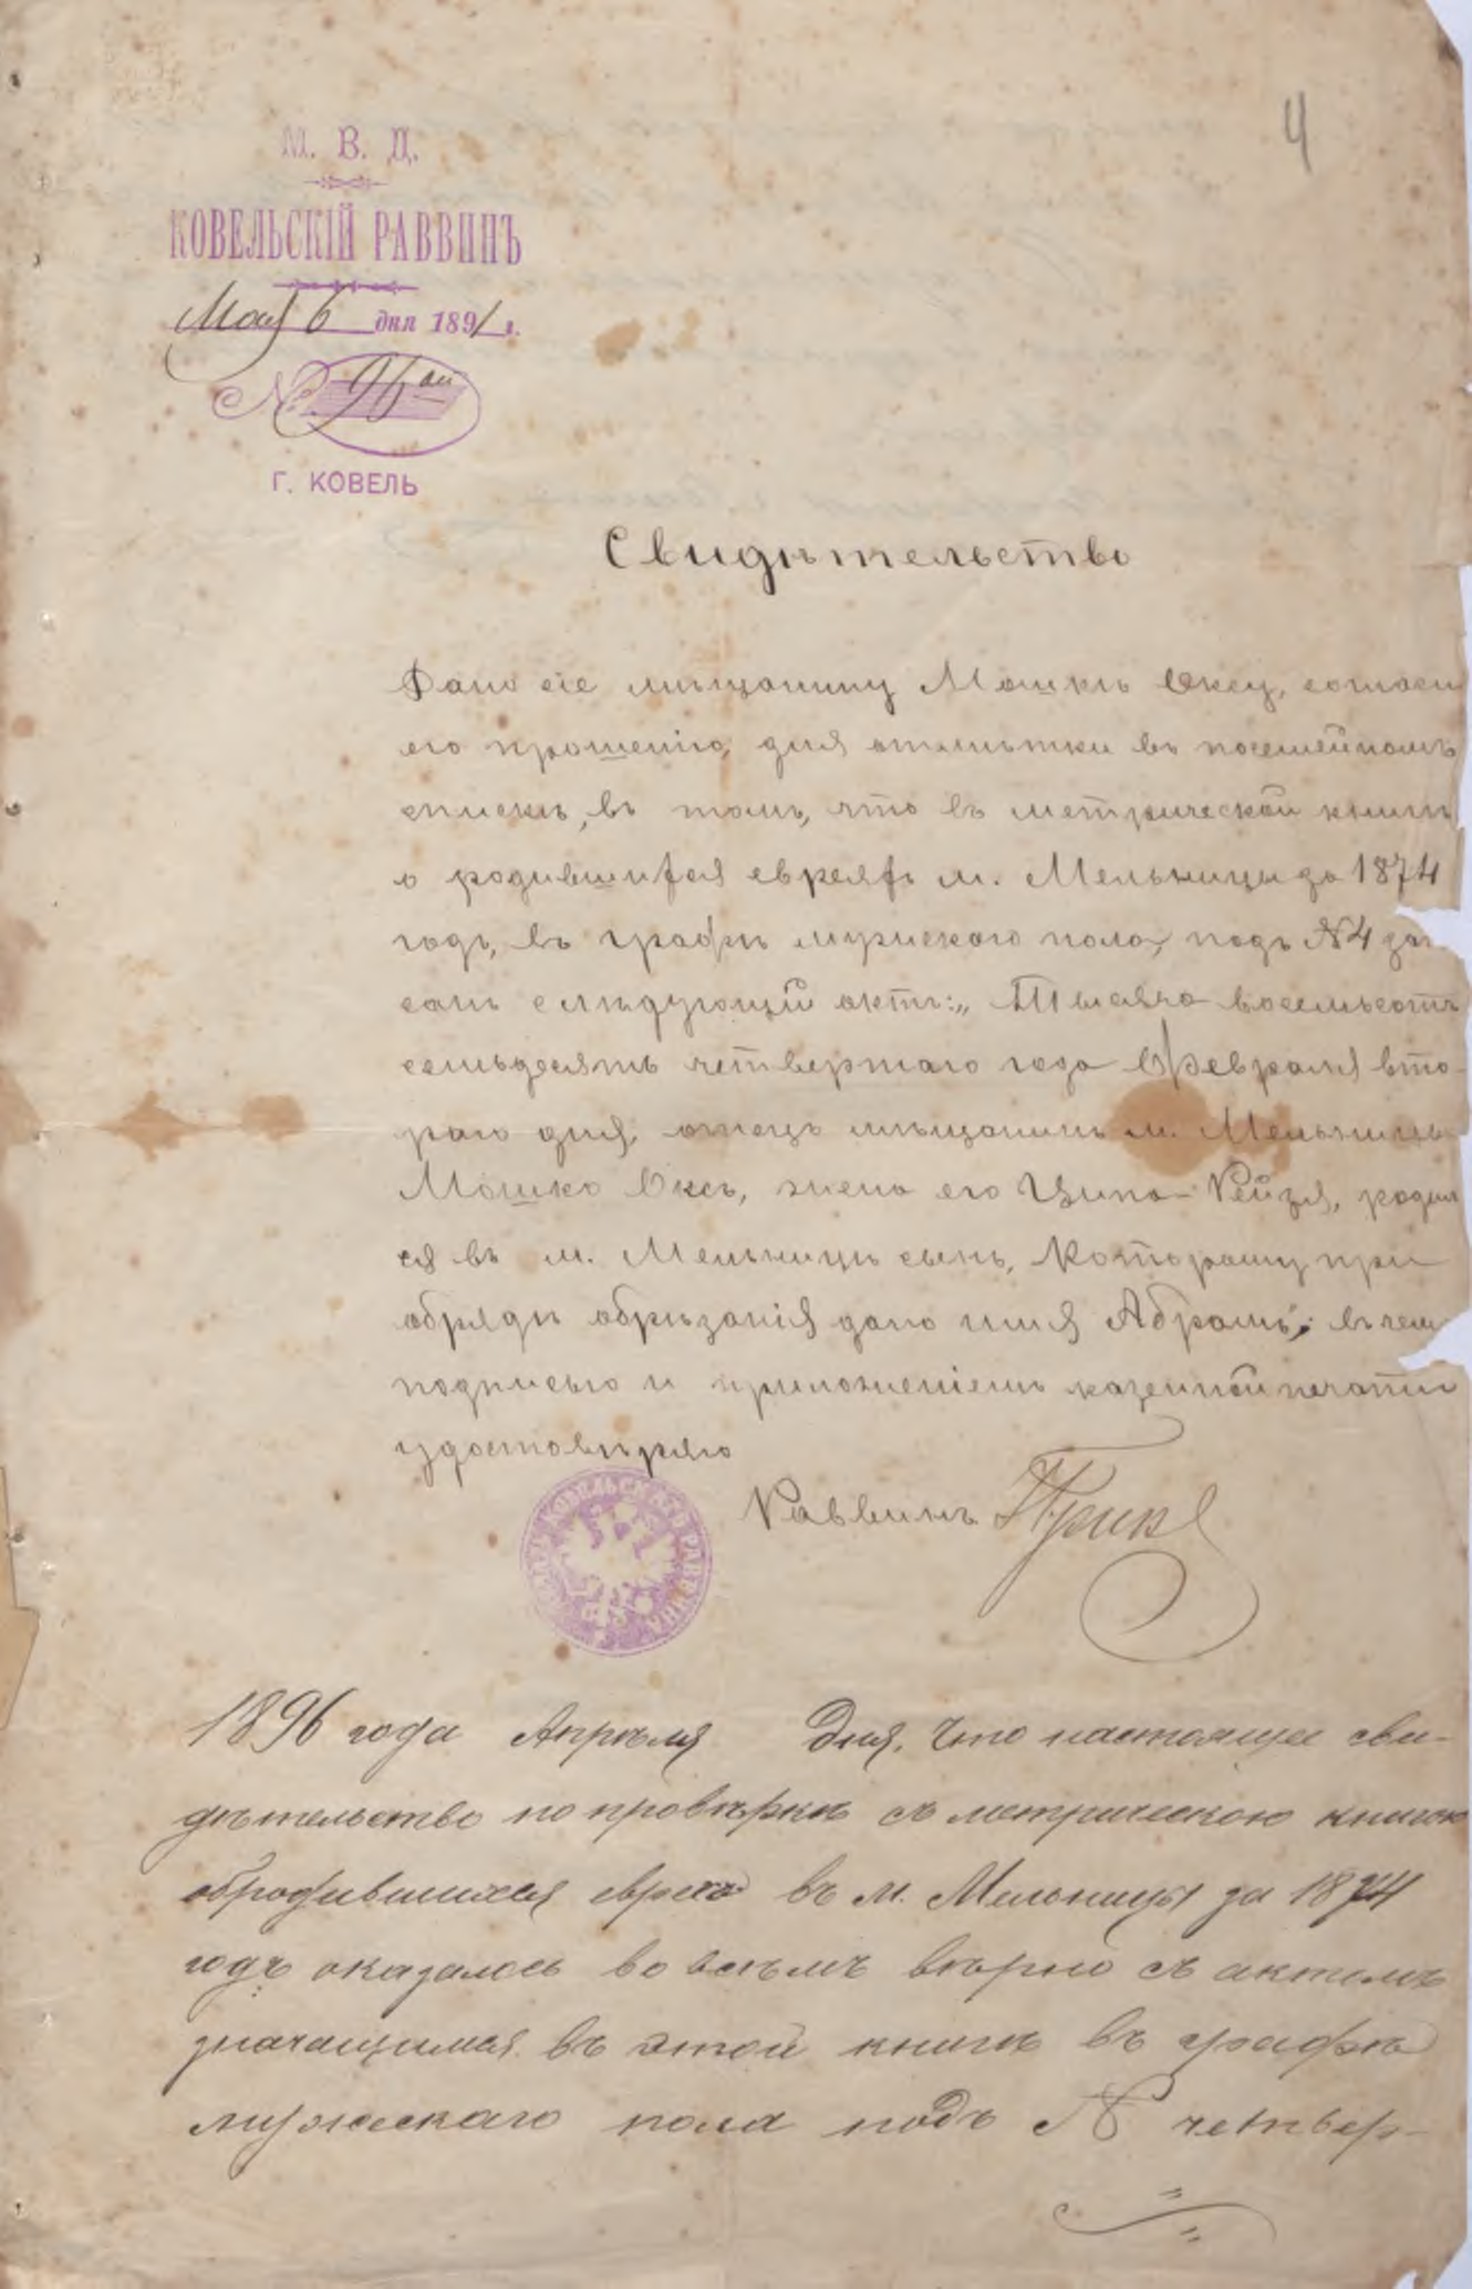 4
М. В. Д.
КОВЕЛЬСКІЙ РАВВИНЪ
Мая 6 дня 1891 г.
№ 96
Г. КОВЕЛЬ
Свидѣтельство
Дано сіе мѣщанину Мошкѣ Оксу, согласн
его прошенію, для отмѣтки въ посемейномъ
спискѣ, въ томъ, что въ метрической книгѣ
о родившихся евреяхъ м. Мельницы за 1874
годъ, въ графѣ мужскаго пола, подъ №4 запи
санъ слѣдующій актъ: „Тысяча восемьсотъ
семьдесятъ четвертаго года Февраля вто-
раго дня, отецъ мѣщанинъ м. Мельницы
Мошко Оксъ, жена его Ципа-Рейзя, родил
ся въ м. Мельницѣ сынъ, которому при
обрядѣ обрѣзанія дано имя Абрамъ; въ чемъ
подписью и приложеніемъ казенной печати
удостовѣряю
Раввинъ
КОВЕЛЬСКАГО РАВВИНА
1896 года Апрѣля дня, Что настоящее сви-
дѣтельство по провѣркѣ съ метрическою книгою
о родившихся евреяхъ въ м. Мельницы за 1874
годъ оказалось во всемъ вѣрно съ актомъ
значащимся въ этой книгѣ въ графѣ
мужескаго пола подъ № четвер-